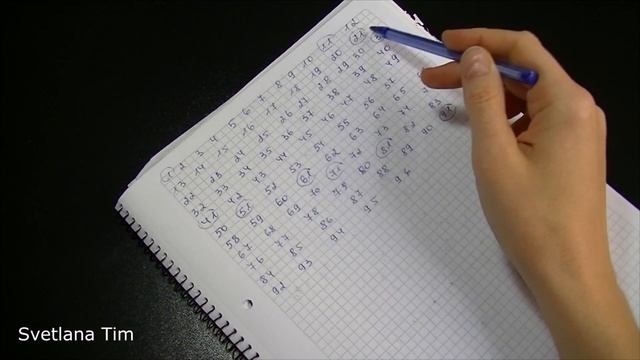 1 2 3 4 5 6 7 8 9 10 11 12
13 14 15 16 17 18 19 20 21
22 23 24 25 26 27 28 29 30
32 33 34 35 36 37 38 39 40
41 42 43 44 45 46 47 48 49
50 51 52 53 54 55 56 57
58 59 60 61 62 63 64 65
67 68 69 70 71 72 73 74
76 77 78 79 80 81 82 83
84 85 86 87 88 89 90 91
92 93 94 95 96
Svetlana Tim